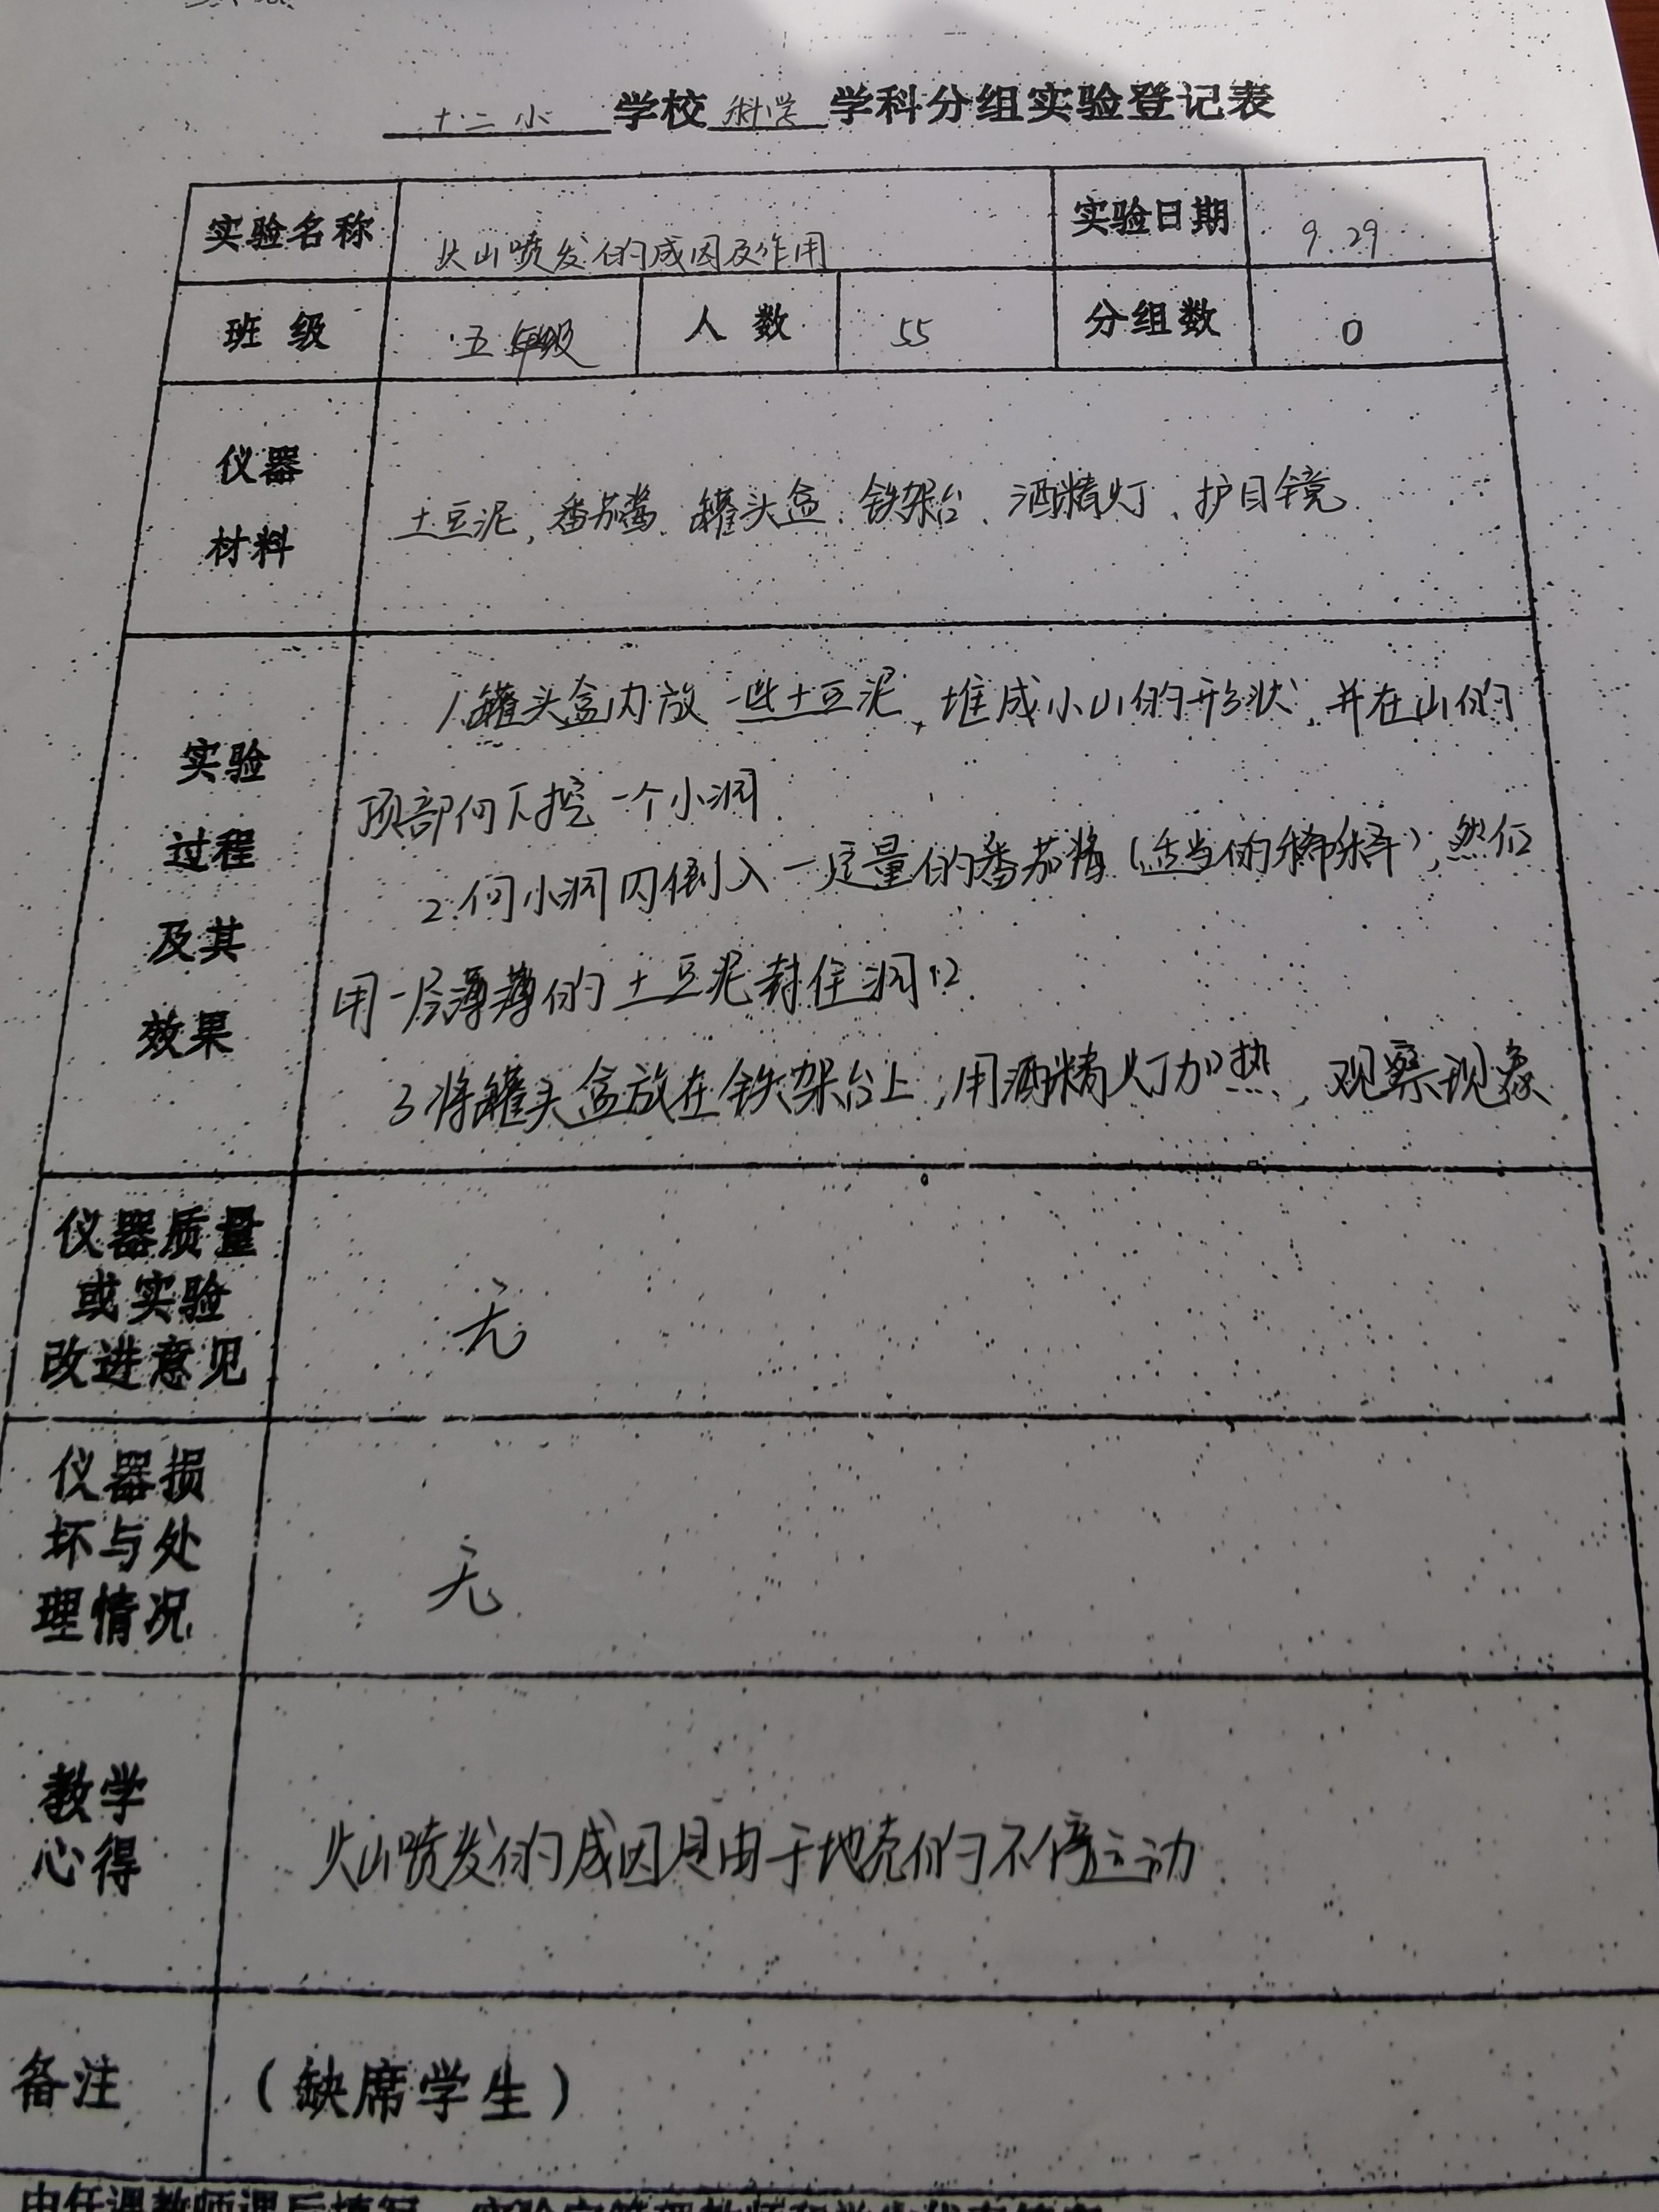 十二小学校科学学科分组实验登记表
实验名称 火山喷发的成因及作用 实验日期 9.29
班级 五年级 人数 55 分组数 0
仪器
材料
土豆泥,番茄酱、罐头盒、铁架台、酒精灯、护目镜
实验
过程
及其
效果
1.罐头盒内放一些土豆泥,堆成小山的形状,并在山的
顶部向下挖一个小洞.
2.向小洞内倒入一定量的番茄酱(适当的稀释),然后
用一层薄薄的土豆泥封住洞口.
3将罐头盒放在铁架台上,用酒精灯加热,观察现象
仪器质量
或实验
改进意见
无
仪器损
坏与处
理情况
无
教学
心得
火山喷发的成因是由于地壳的不停运动.
备注 (缺席学生)